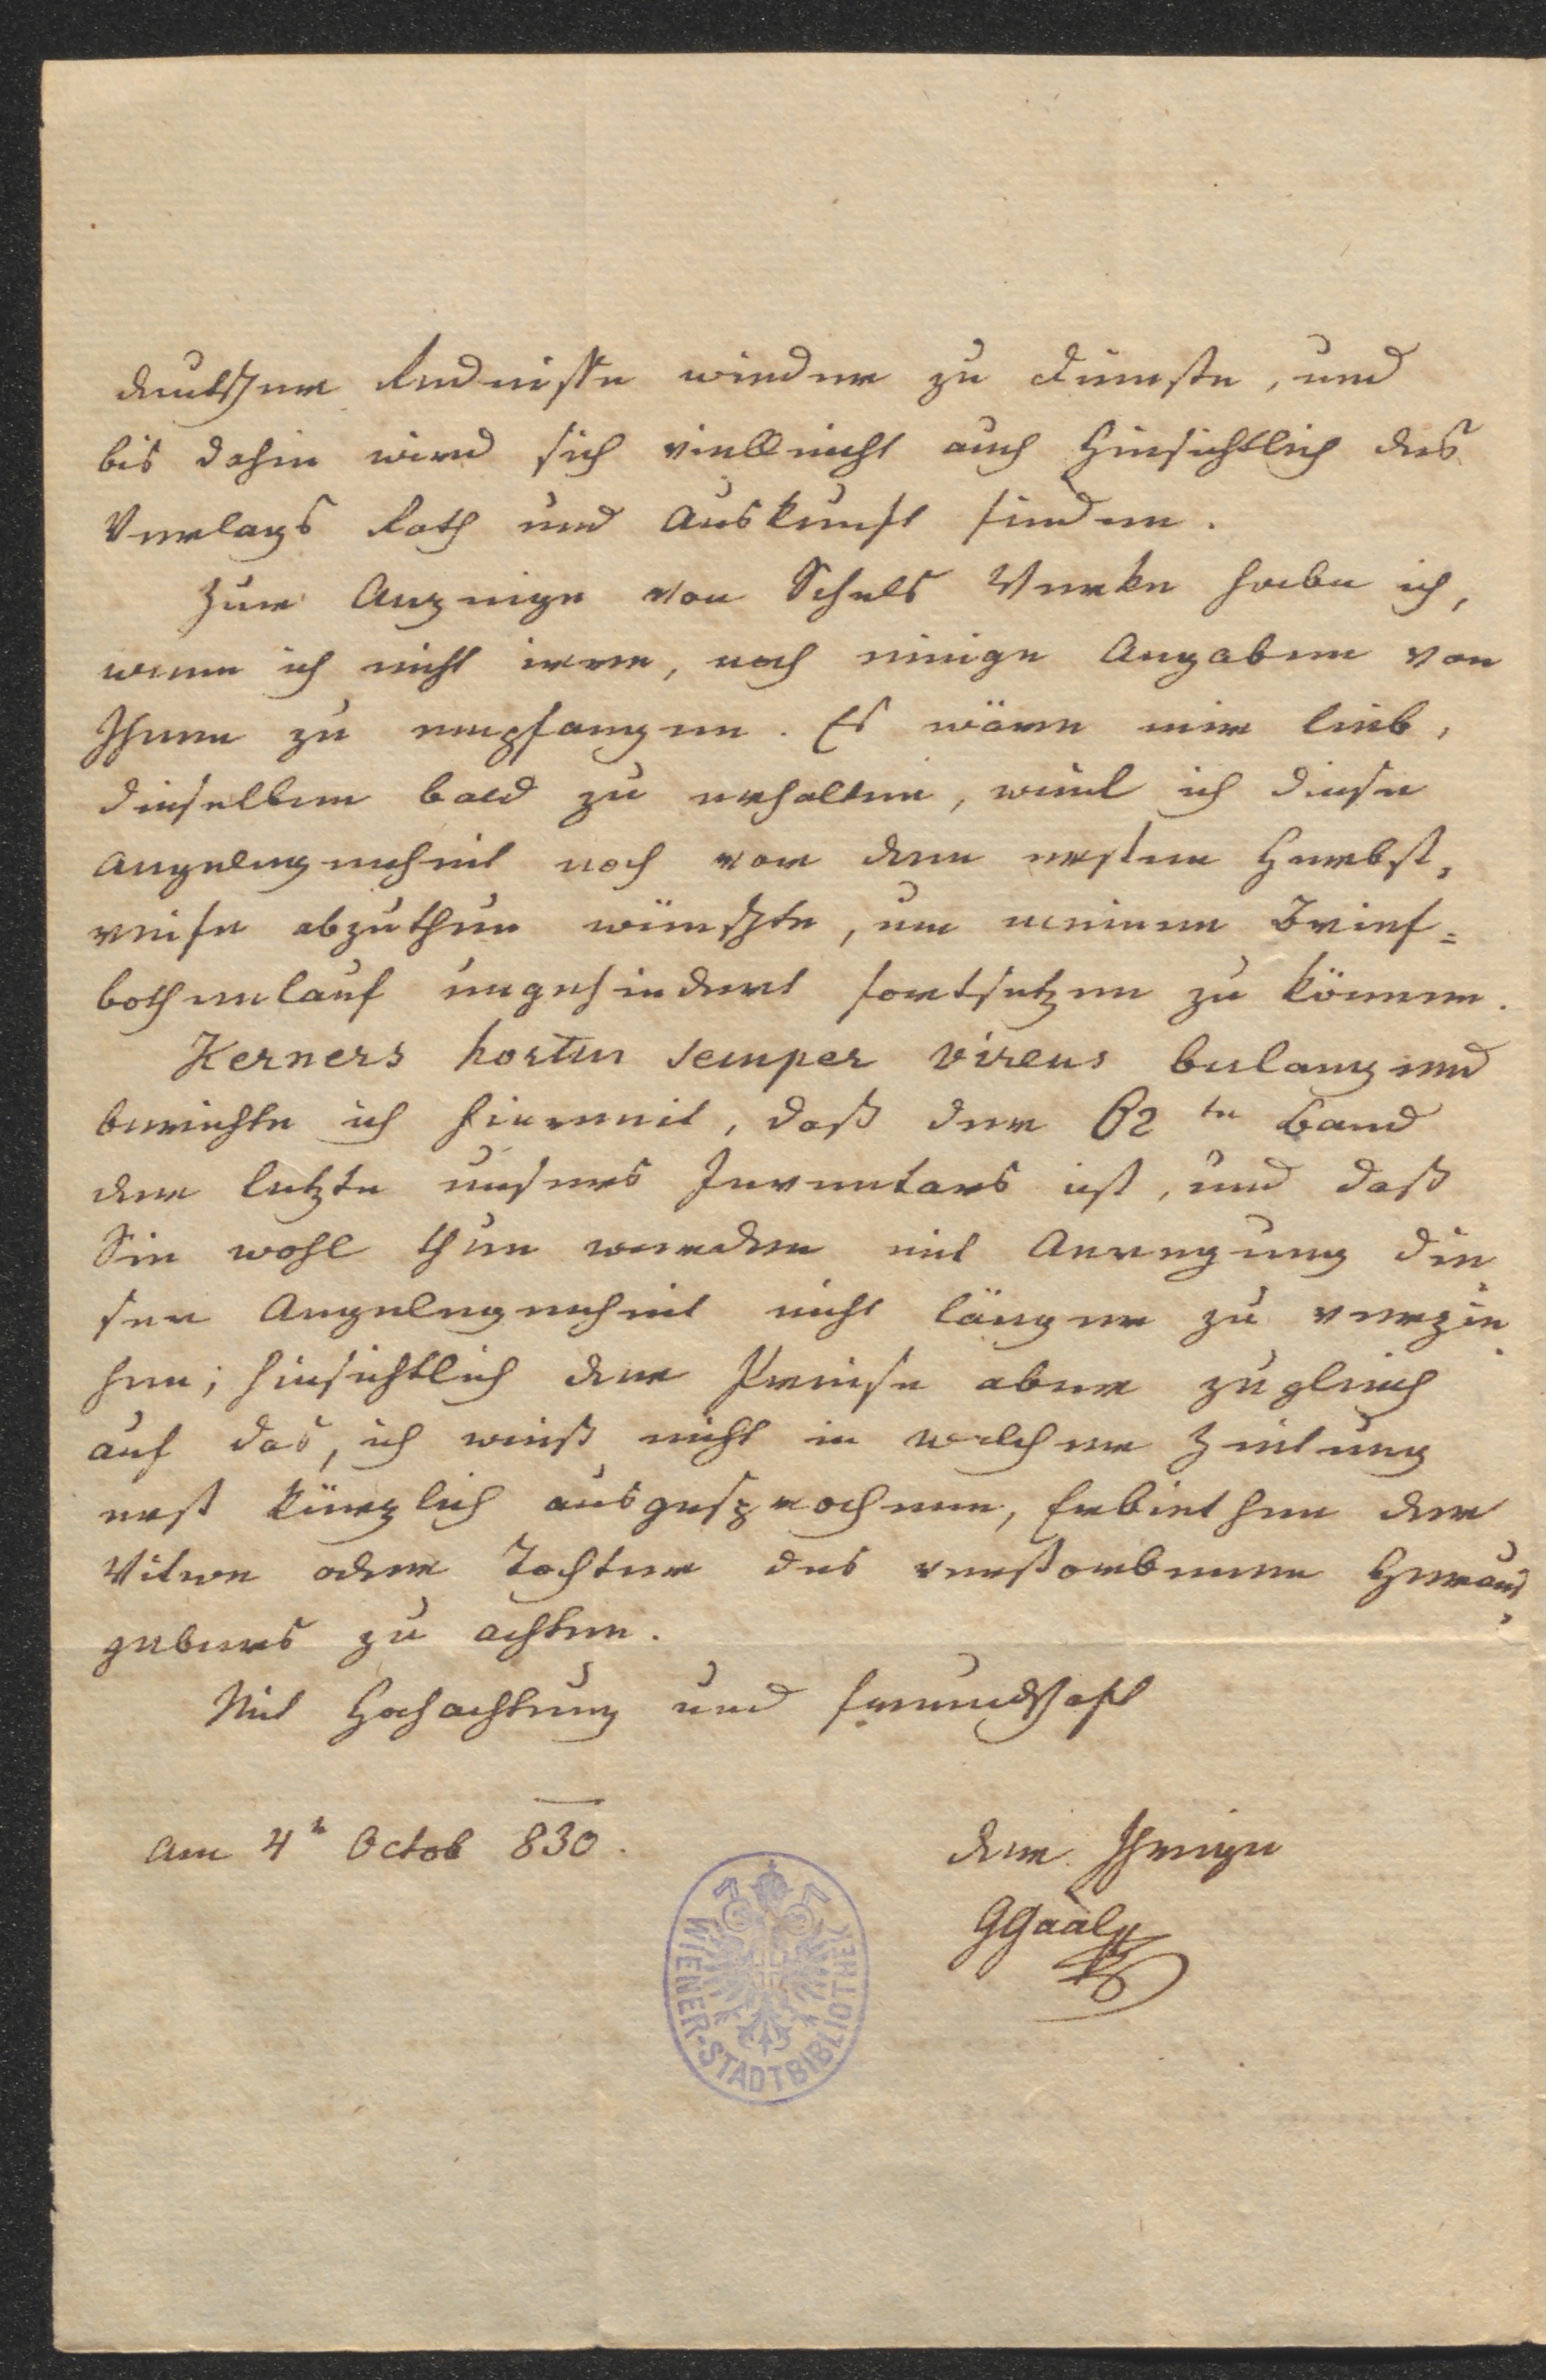 deutscher Redeweise wieder zu Dienste, und
bis dahin wird sich vielleicht auch hinsichtlich des
Verlags Rath und Auskunft finden.
Zur Anzeige von Schels Werke habe ich,
wenn ich nicht irre, noch einige Angaben von
Ihnen zu empfangen. Es wäre mir lieb,
dieselben bald zu erhalten, weil ich diese
Angelegenheit noch vor dem ersten Herbst,
reise abzuthun wünschte, um meinen Brief=
bothenlauf ungehindert fortsetzen zu können.
Kerners hortus semper virens belangend
berichte ich hiermit, daß der 62te Band
der letzte unsers Inventars ist, und daß
Sie wohl thun werden mit Anregung die
ser Angelegenheit nicht länger zu verzie
hen; hinsichtlich der Preise aber zugleich
auf das, ich weiß nicht in welcher Zeitung
erst kürzlich ausgesprochene, Erbiethen der
Witwe oder Tochter des verstorbenen Heraus
gebers zu achten.
Mit Hochachtung und Freundschaft
Am 4n Octob 830.
der Ihrige
GGaal
WIENER-STADTBIBLIOTHEK